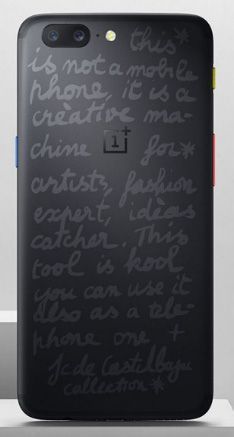 this*
is not a mobile
phone, it is a
crèative ma-
chine for*
artists, fashion
expert, idèas
catcher. This
tool is kool
you can use it
also as a tele-
phone one +
Jc de Castelbajac
collection*